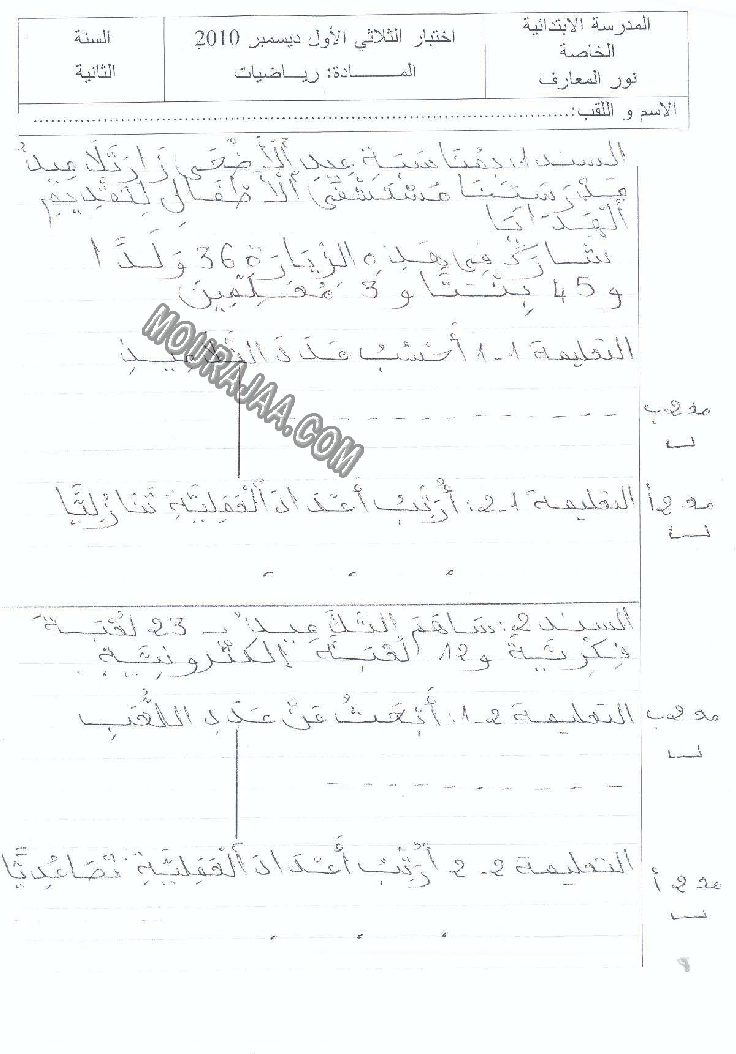 المدرسة الابتدائية
الخاصة
نور المعارف
اختبار الثلاثي الأول ديسمبر 2010
المـــــادة: رياضيات
السنة
الثانية
الاسم و اللقب:........................................
السند 1: بِمُنَاسَبَةِ عِيدِ ٱلْأَضْحَى زَارَ تَلَامِيذُ
مَدْرَسَتِنَا مُسْتَشْفَى ٱلْأَطْفَالِ لِتَقْدِيمِ
ٱلْهَدَايَا
شَارَكَ فِي هَذِهِ الزِّيَارَةِ 36 وَلَدًا
و 45 بِنْتًا و 3 مُعَلِّمِينَ
التعليمة 1-1 أَحْسُبُ عَدَدَ التَّلَامِيذِ
MOURAJAA.COM
مع 2 ب
التعليمة 1-2: أُرَتِّبُ أَعْدَادَ ٱلْعَمَلِيَّةِ تَنَازُلِيًّا
مع 2 أ
السند 2: سَاهَمَ التَّلَامِيذُ بـ 23 لُعْبَةً
فِكْرِيَّةً و 12 لُعْبَةً إِلِكْتْرُونِيَّةً
التعليمة 2-1: أَبْحَثُ عَنْ عَدَدِ اللُّعَبِ
مع 2 ب
التعليمة 2-2 أُرَتِّبُ أَعْدَادَ ٱلْعَمَلِيَّةِ تَصَاعُدِيًّا
مع 2 أ